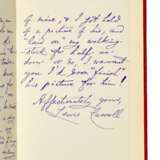 of mine, & I got hold
of a picture of his, and
laid on my walking-
stick, for half an-
hour or so, I warrant
you I'd soon "finish"
his picture for him!
Affectionately yours,
Lewis Carroll